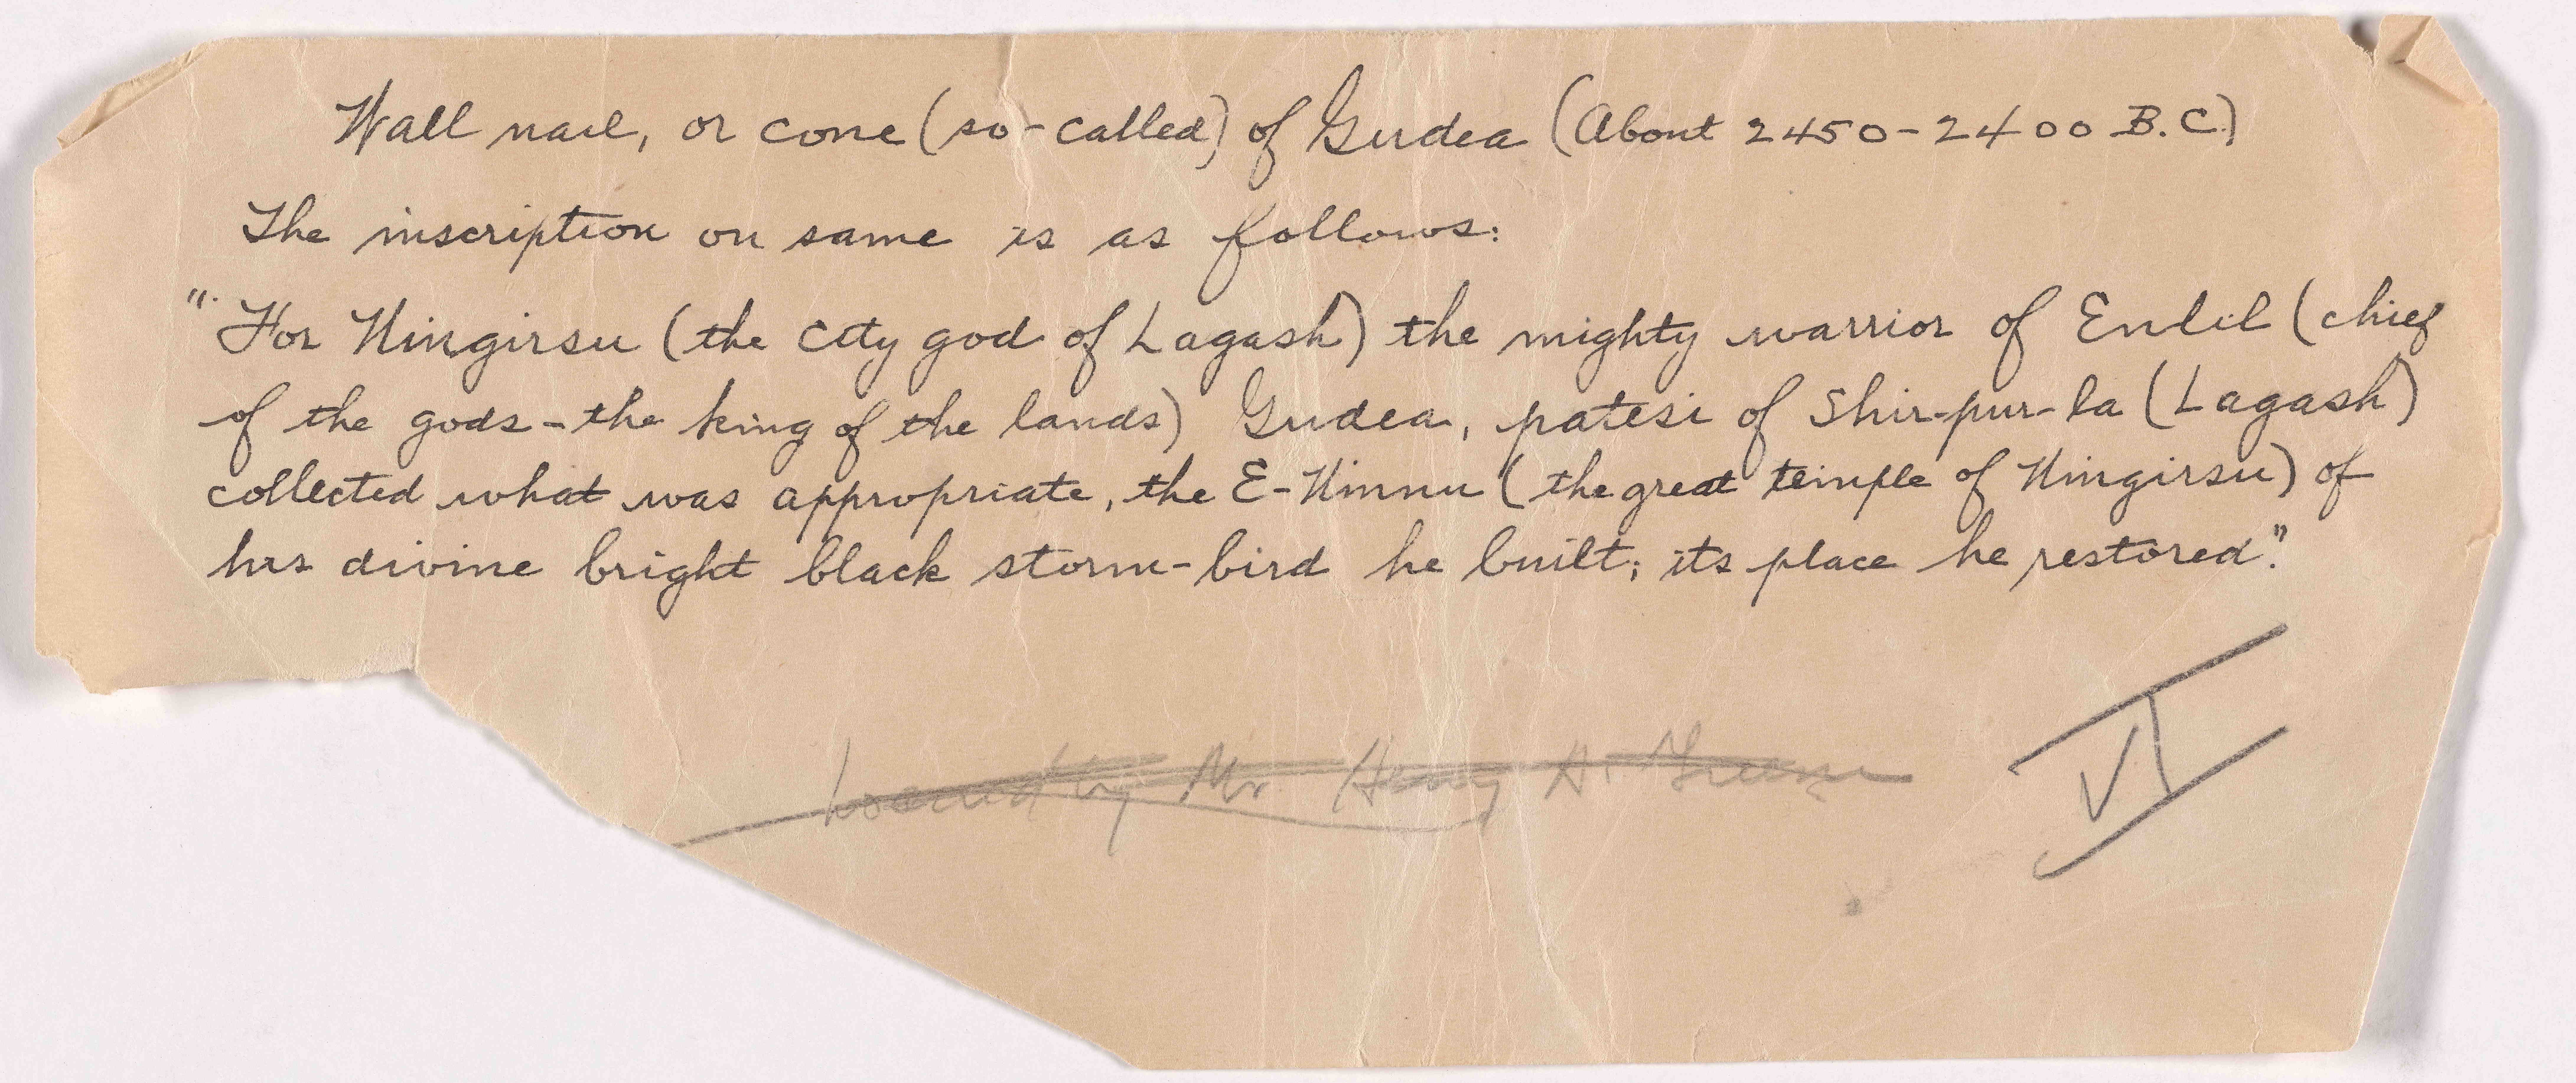 Wall nail, or cone (so-called) of Gudea (About 2450-2400 B.C.)
The inscription on same is as follows:
"For Ningirsu (the city god of Lagash) the mighty warrior of Enlil (chief
of the gods - the king of the lands) Gudea, patesi of Shir-pur-la (Lagash)
collected what was appropriate, the E-Ninnu (the great temple of Ningirsu) of
his divine bright black storm-bird he built; its place he restored."
by Mr. Henry
VI